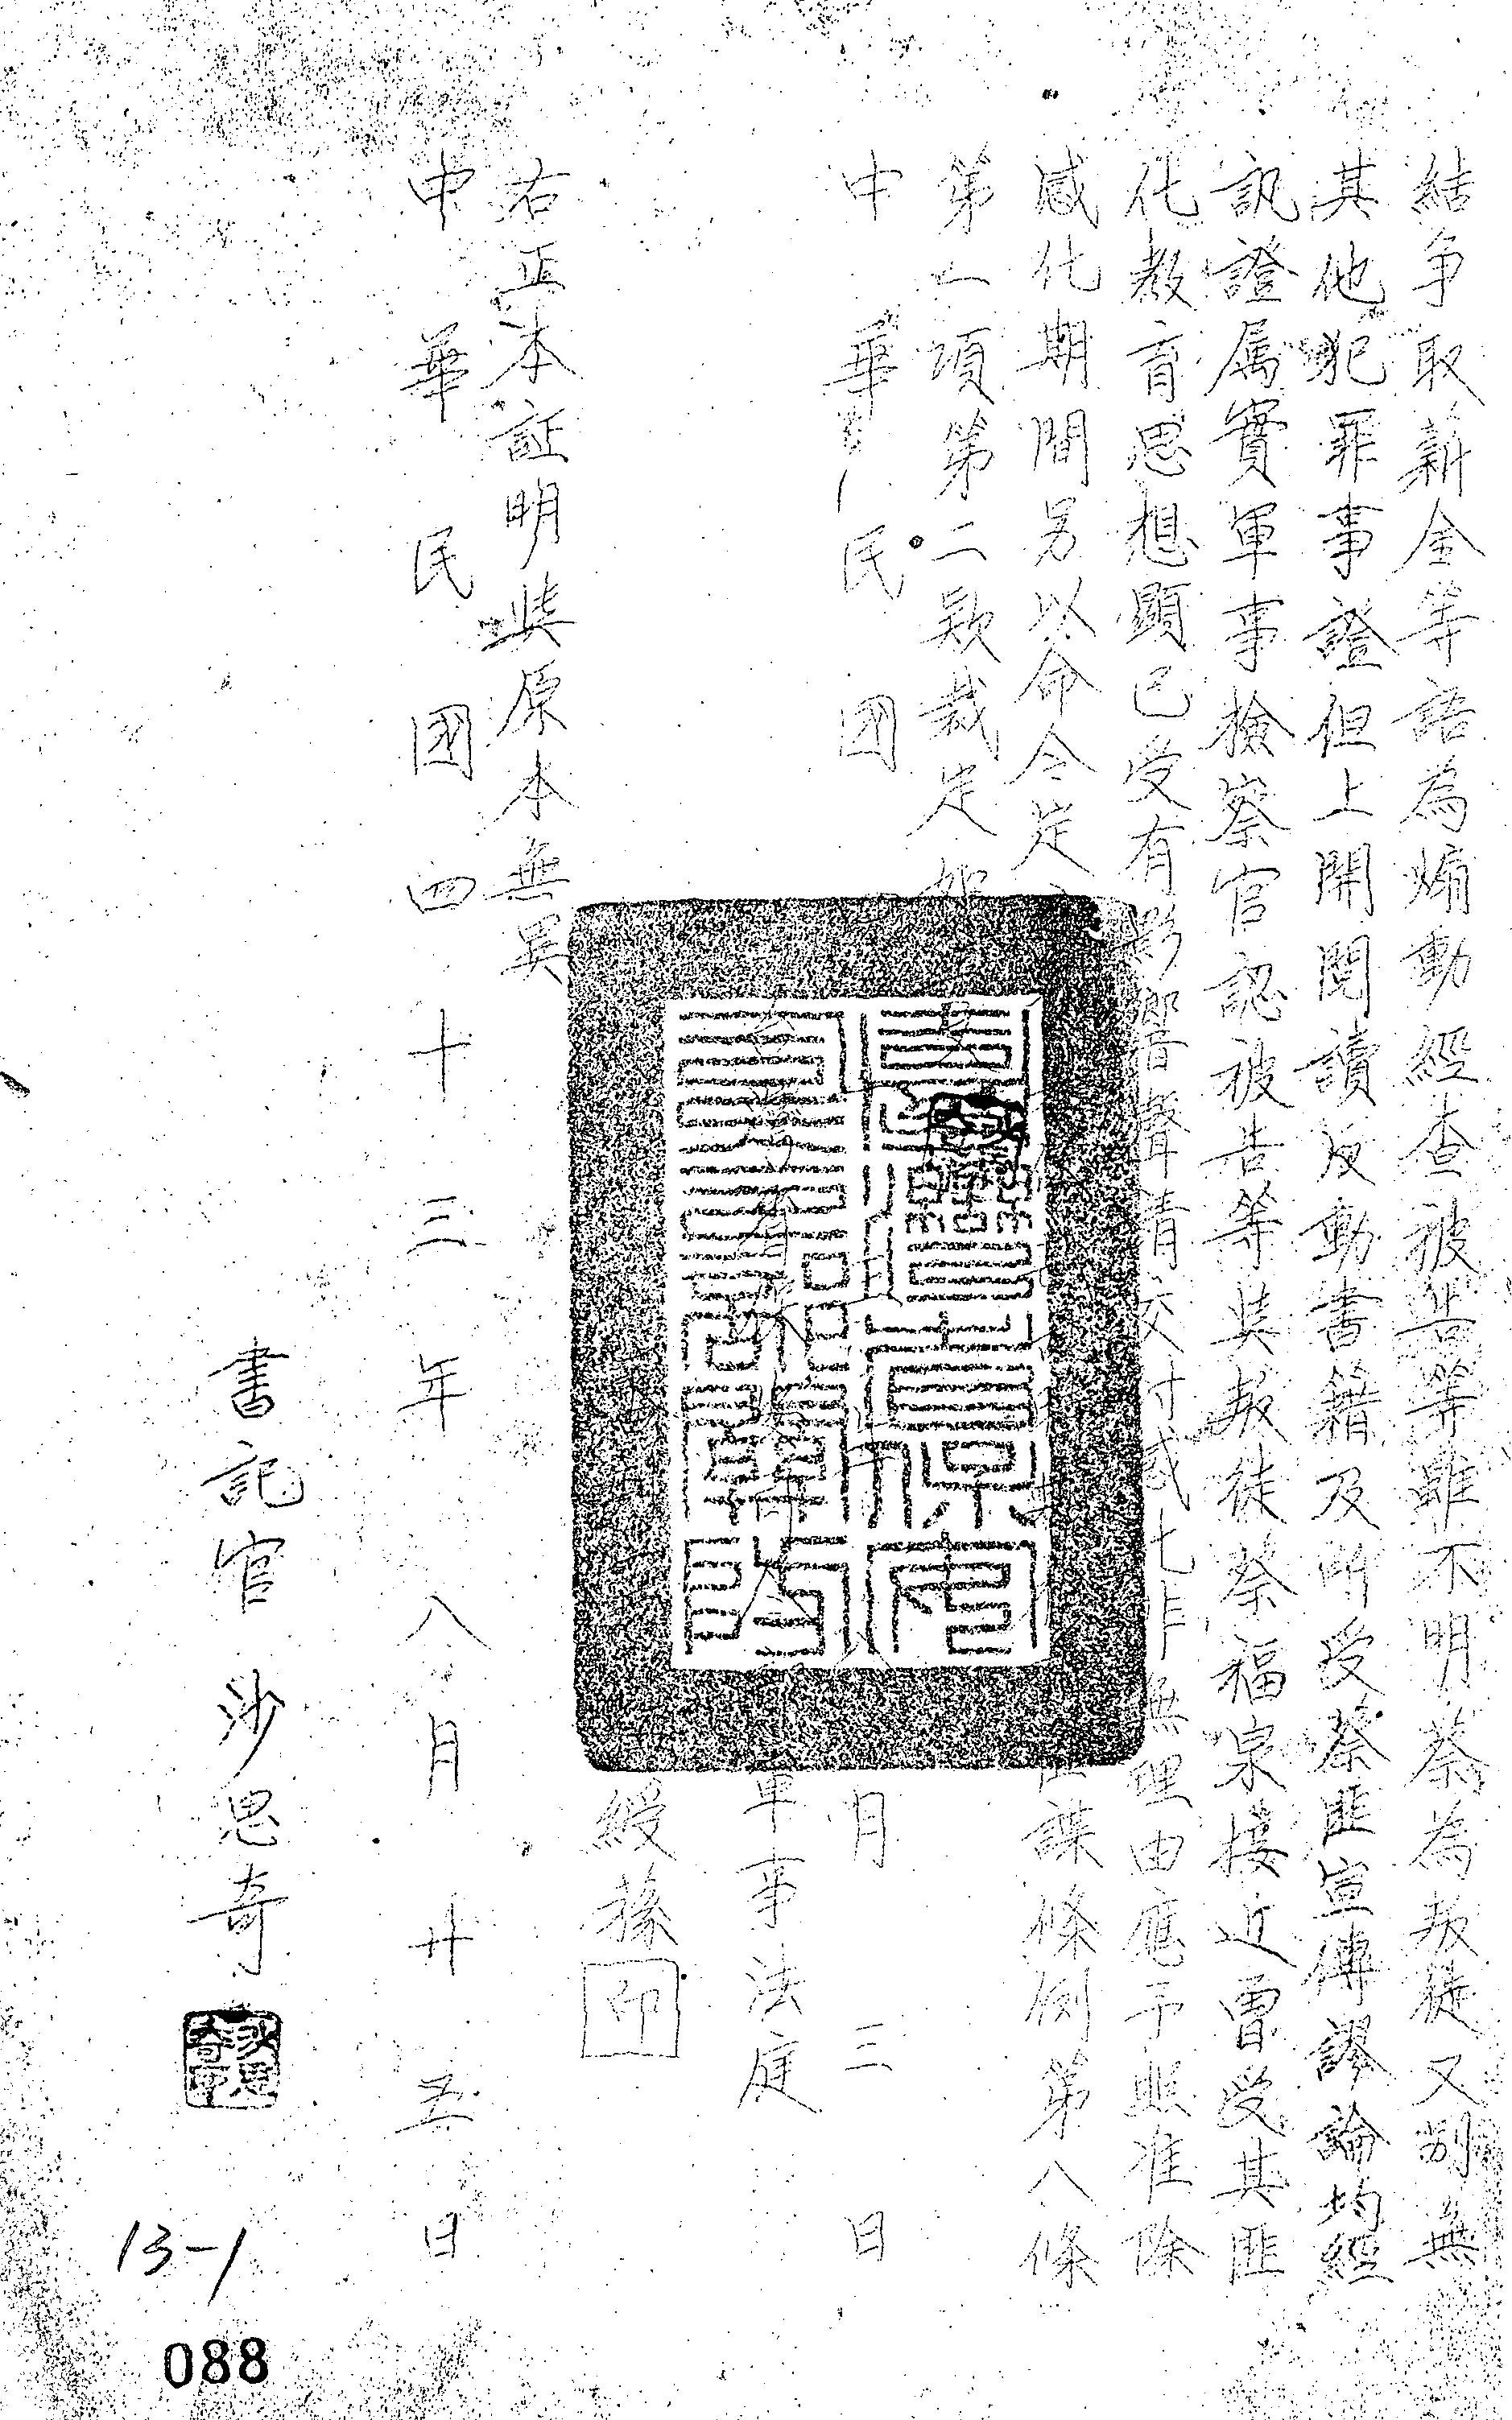 結爭取薪金等語為煽動經查被告等雖不明蔡為叛徒又別無
其他犯罪事證但上開閱讀反動書籍及所受蔡匪宣傳謬論均經
訊證屬實軍事檢察官認被告等與叛徒蔡福泉接近曾受其匪
化教育思想顯已受有影響聲請交付感化非無理由應予照准除
感化期間另以命令定 諜條例第八條
第一項第二款裁定如
中華民國 月三日
軍事法庭
綬椽印
右正本証明與原本無異
中華民國四十三年八月廿五日
書記官 沙思奇
13-1
088